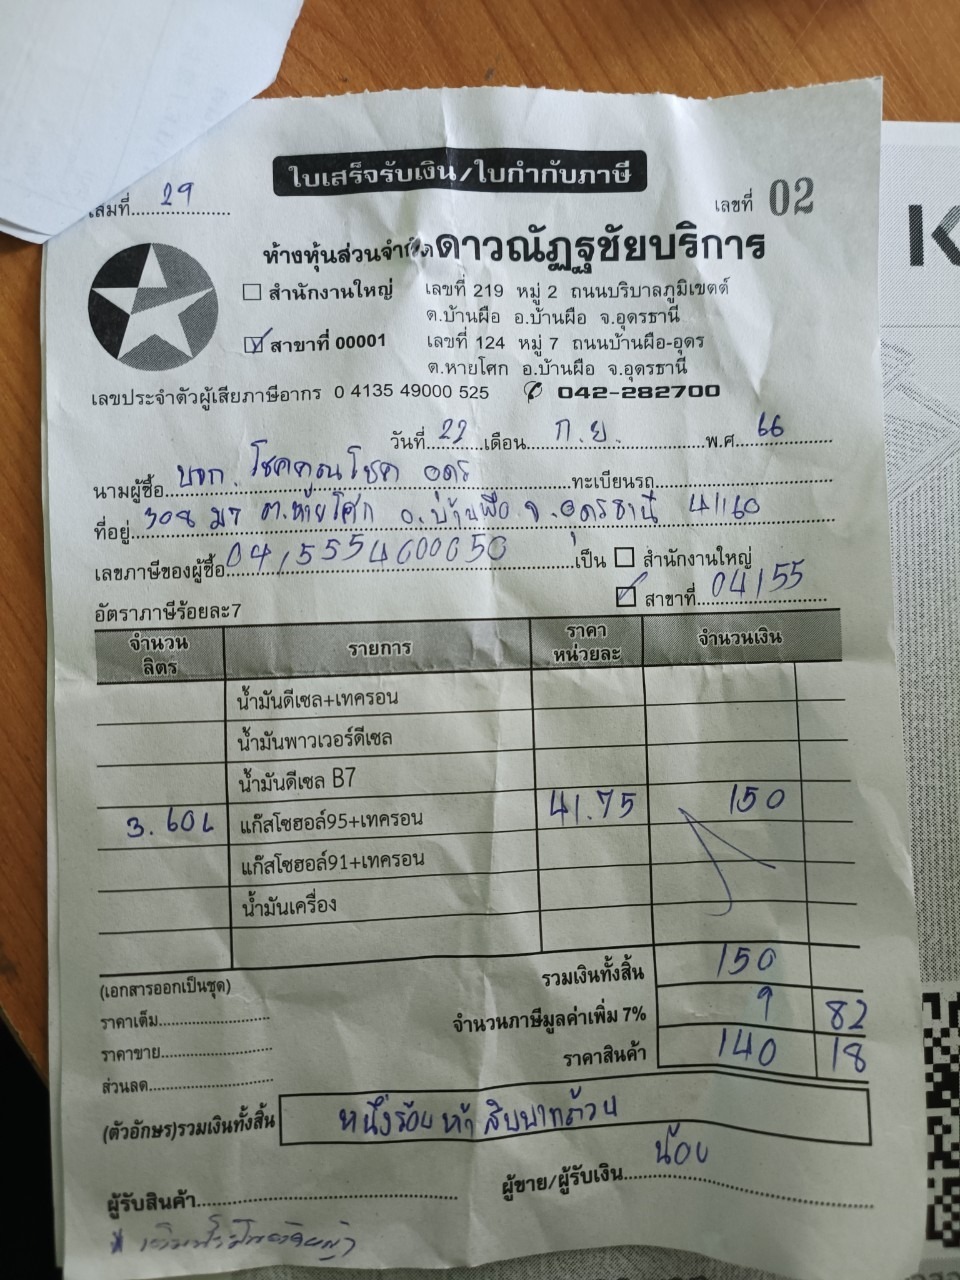 ใบเสร็จรับเงิน/ใบกำกับภาษี
เล่มที่ 29
เลขที่ 02
ห้างหุ้นส่วนจำกัด ดาวณัฏฐชัยบริการ
สำนักงานใหญ่ เลขที่ 219 หมู่ 2 ถนนบริบาลภูมิเขตต์
ต.บ้านผือ อ.บ้านผือ จ.อุดรธานี
สาขาที่ 00001 เลขที่ 124 หมู่ 7 ถนนบ้านผือ-อุดร
ต.หายโศก อ.บ้านผือ จ.อุดรธานี
เลขประจำตัวผู้เสียภาษีอากร 0 4135 49000 525 042-282700
วันที่ 22 เดือน ก.ย. พ.ศ. 66
นามผู้ซื้อ บจก. โชคคูณโชค อุดร ทะเบียนรถ
ที่อยู่ 308 ม7 ต.หายโศก อ.บ้านผือ จ.อุดรธานี 41160
เลขภาษีของผู้ซื้อ เป็น สำนักงานใหญ่
สาขาที่ 04155
อัตราภาษีร้อยละ7
จำนวน ลิตร รายการ ราคา หน่วยละ จำนวนเงิน
น้ำมันดีเซล+เทครอน
น้ำมันพาวเวอร์ดีเซล
น้ำมันดีเซล B7
3.60 L แก๊สโซฮอล์95+เทครอน 41.75 150
แก๊สโซฮอล์91+เทครอน
น้ำมันเครื่อง
(เอกสารออกเป็นชุด) รวมเงินทั้งสิ้น 150
ราคาเต็ม จำนวนภาษีมูลค่าเพิ่ม 7% 9 82
ราคาขาย ราคาสินค้า 140 18
ส่วนลด
(ตัวอักษร)รวมเงินทั้งสิ้น หนึ่งร้อยห้าสิบบาทถ้วน
ผู้รับสินค้า ผู้ขาย/ผู้รับเงิน น้อย
K